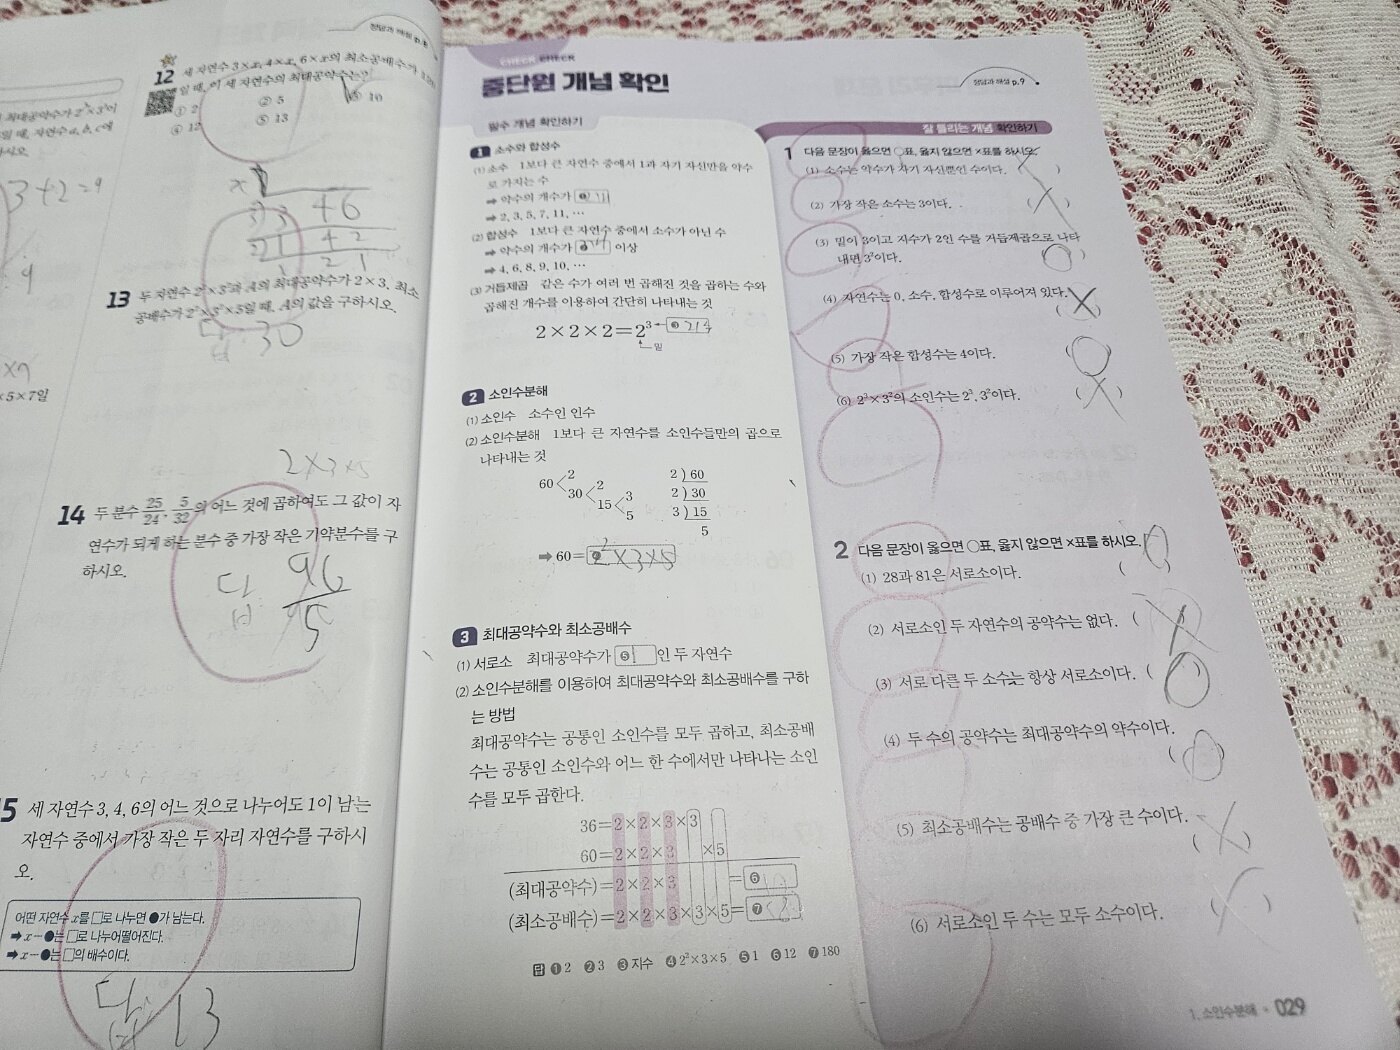 정답과 해설 p.8
12 세 자연수 3×x, 4×x, 6×x의 최소공배수가
일 때, 이 세 자연수의 최대공약수는?
① 2 ② 5 ③ 10
④ 12 ⑤ 13
최대공약수가 2²×3²이
일 때, 자연수 a, b, c에
하시오.
3+2=9
x
3 4 6
2 1 4 2
1 2 1
13 두 자연수 2²×3²과 A의 최대공약수가 2×3, 최소
공배수가 2²×3²×5일 때, A의 값을 구하시오.
답: 30
×7
×5×7일
2×3×5
14 두 분수 25/24, 5/32의 어느 것에 곱하여도 그 값이 자
연수가 되게 하는 분수 중 가장 작은 기약분수를 구
하시오.
답: 96/5
15 세 자연수 3, 4, 6의 어느 것으로 나누어도 1이 남는
자연수 중에서 가장 작은 두 자리 자연수를 구하시
오.
어떤 자연수 x를 □로 나누면 ●가 남는다.
➡ x-●는 □로 나누어떨어진다.
➡ x-●는 □의 배수이다.
답: 13
CHECK CHECK
중단원 개념 확인
정답과 해설 p.9
필수 개념 확인하기
1 소수와 합성수
(1) 소수 1보다 큰 자연수 중에서 1과 자기 자신만을 약수
로 가지는 수
➡ 약수의 개수가 ❶
➡ 2, 3, 5, 7, 11, …
(2) 합성수 1보다 큰 자연수 중에서 소수가 아닌 수
➡ 약수의 개수가 ❷ 이상
➡ 4, 6, 8, 9, 10, …
(3) 거듭제곱 같은 수가 여러 번 곱해진 것을 곱하는 수와
곱해진 개수를 이용하여 간단히 나타내는 것
2×2×2=2³ ❸ 지수
밑
2 소인수분해
(1) 소인수 소수인 인수
(2) 소인수분해 1보다 큰 자연수를 소인수들만의 곱으로
나타내는 것
60 2 30 2 15 3 5
2 ) 60
2 ) 30
3 ) 15
5
➡ 60= ❹ 2²×3×5
3 최대공약수와 최소공배수
(1) 서로소 최대공약수가 ❺ 1 인 두 자연수
(2) 소인수분해를 이용하여 최대공약수와 최소공배수를 구하
는 방법
최대공약수는 공통인 소인수를 모두 곱하고, 최소공배
수는 공통인 소인수와 어느 한 수에서만 나타나는 소인
수를 모두 곱한다.
36=2×2×3×3
60=2×2×3 ×5
(최대공약수)=2×2×3 = ❻
(최소공배수)=2×2×3×3×5= ❼
답 ❶ 2 ❷ 3 ❸ 지수 ❹ 2²×3×5 ❺ 1 ❻ 12 ❼ 180
잘 틀리는 개념 확인하기
1 다음 문장이 옳으면 ○표, 옳지 않으면 ×표를 하시오.
(1) 소수는 약수가 자기 자신뿐인 수이다. ( × )
(2) 가장 작은 소수는 3이다. ( × )
(3) 밑이 3이고 지수가 2인 수를 거듭제곱으로 나타
내면 3²이다. ( ○ )
(4) 자연수는 0, 소수, 합성수로 이루어져 있다. ( × )
(5) 가장 작은 합성수는 4이다. ( ○ )
(6) 2³×3²의 소인수는 2³, 3²이다. ( × )
2 다음 문장이 옳으면 ○표, 옳지 않으면 ×표를 하시오.
(1) 28과 81은 서로소이다. ( ○ )
(2) 서로소인 두 자연수의 공약수는 없다. ( × )
(3) 서로 다른 두 소수는 항상 서로소이다. ( ○ )
(4) 두 수의 공약수는 최대공약수의 약수이다. ( ○ )
(5) 최소공배수는 공배수 중 가장 큰 수이다. ( × )
(6) 서로소인 두 수는 모두 소수이다. ( × )
1. 소인수분해 • 029